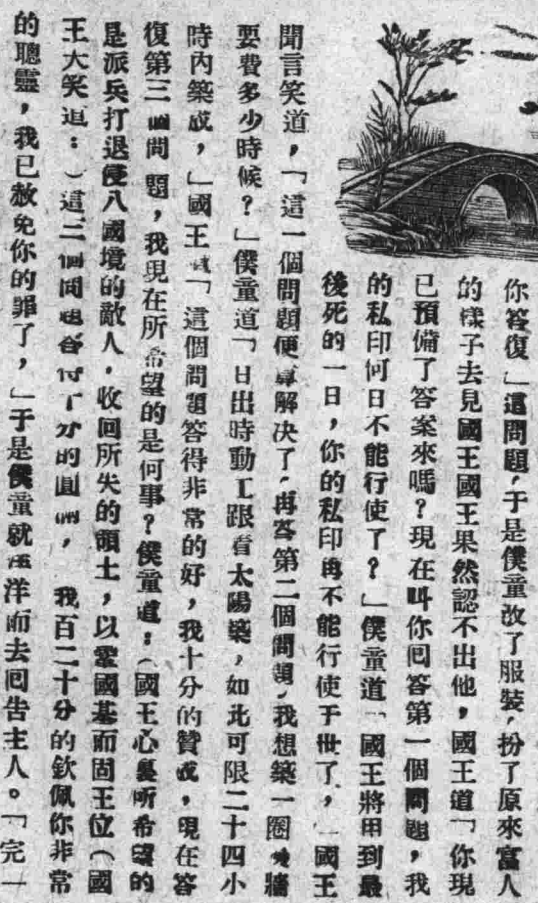 你答復」這問題，于是僕童改了服裝，扮了原來富人
的樣子去見國王國王果然認不出他，國王道「你現
已預備了答案來嗎？現在叫你囘答第一個問題，我
的私印何日不能行使了？」僕童道「國王將用到最
後死的一日，你的私印再不能行使于世了，」國王
聞言笑道，「這一個問題便算解决了，再答第二個問題，我想築一圈墻
要費多少時候？」僕童道「日出時動工跟着太陽築，如此可限二十四小
時內築成，」國王「這個問題答得非常的好，我十分的贊成，現在答
復第三個問題，我現在所希望的是何事？僕童道：（國王心裏所希望的
是派兵打退侵入國境的敵人，收回所失的領土，以鞏國基而固王位（國
王大笑道：）這三個問題答付十分的圓滿，我百二十分的欽佩你非常
的聰靈，我已赦免你的罪了，」于是僕童就洋洋而去囘告主人。「完」